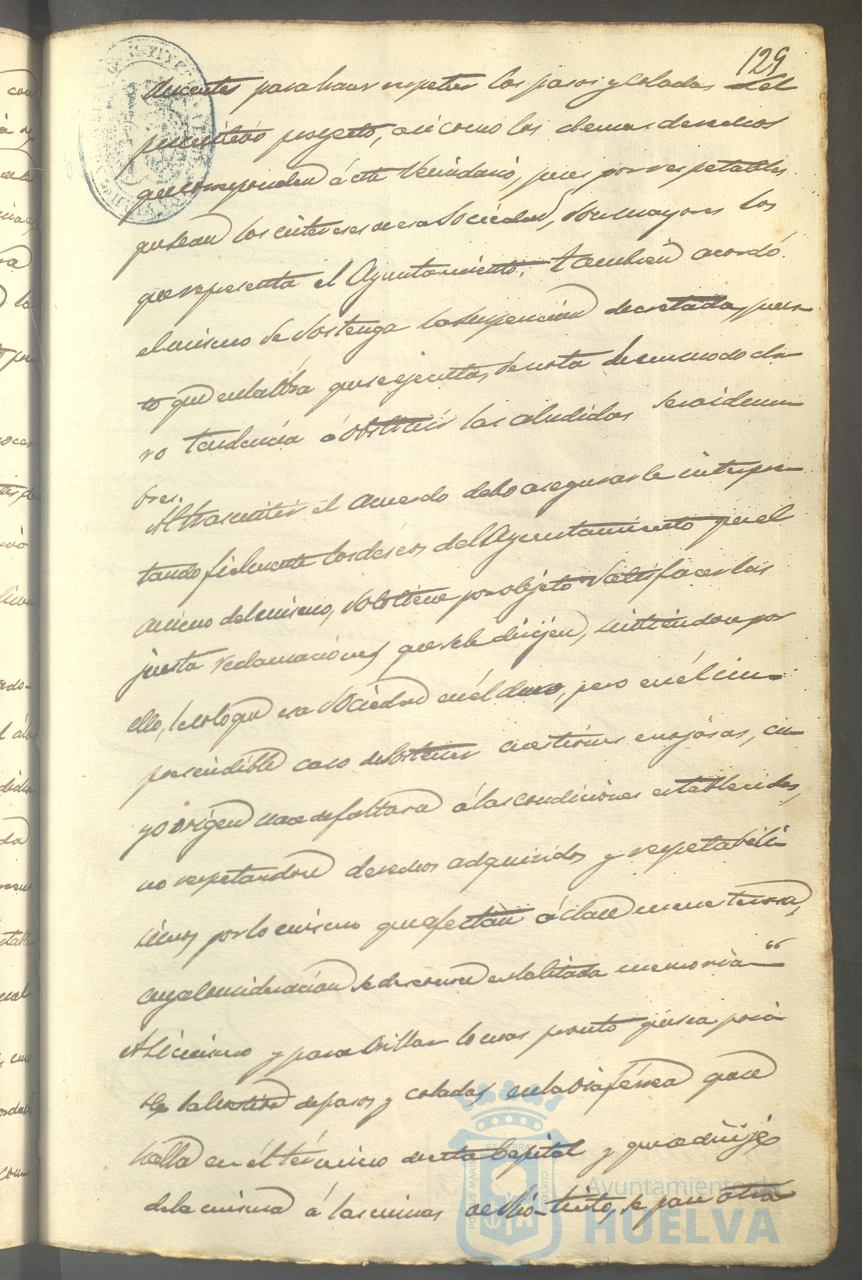 129
ducentes para hacer respetar los pasos y coladas del
primitivo proyecto, asi como los demas derechos
que corresponden á este Vecindario, pues por respetables
que sean los intereses de esa Sociedad, son mayores los
que representa el Ayuntamiento; tambien acordó
el mismo se sostenga la suspension decretada, pues-
to que en la obra que se ejecuta, se nota de un modo cla-
ro tendencia á obstruir las aludidas servidum-
bres.
Al trascribir el acuerdo debo asegurarle interpre-
tando fielmente los deseos del Ayuntamiento que el
animo del mismo, solo tiene por objeto satisfacer las
justas reclamaciones que se le dirijen, sintiendo por
ello, se coloque esa Sociedad en el duro, pero en él im-
prescindible caso de sostener cuestiones enojosas, cu-
yo origen nace de faltar á las condiciones establecidas,
no respetandose derechos adquiridos y respetabili-
simos por lo mismo que afectan á clase menesterosa,
cuya consideracion se desconoce en la citada memoria"
Asi mismo y para orillar lo mas pronto que sea posi-
ble la cuestion de pasos y coladas en la via férrea que se
halla en él término de esta Capital y que se dirije
de la misma á las minas de Rio-tinto, se pase otra
Ayuntamiento de
HUELVA